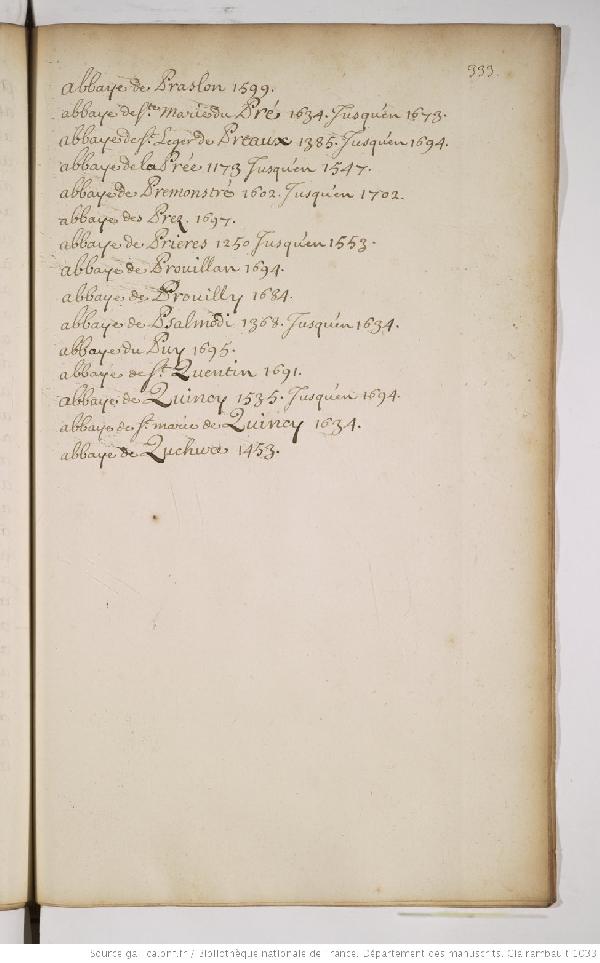 333.
abbaye de Praslon 1599.
abbaye de Ste. marie du Pré 1634. Jusqu'en 1673.
abbaye de St. Leger de Preaux 1385. Jusqu'en 1694.
abbaye de la Prée 1173 Jusqu'en 1547.
abbaye de Premonstré 1602. Jusqu'en 1702.
abbaye des Prez. 1697.
abbaye de Prieres 1250 Jusqu'en 1553.
abbaye de Prouillan 1694.
abbaye de Prouilly 1684.
abbaye de Psalmodi 1368. Jusqu'en 1634.
abbaye du Puy 1695.
abbaye de St. Quentin 1691.
abbaye de Quincy 1535. Jusqu'en 1694.
abbaye de St. marie de Quincy 1634.
abbaye de 1453.
Source gallica.bnf.fr / Bibliothèque nationale de France. Département des manuscrits. Clairambault 1033